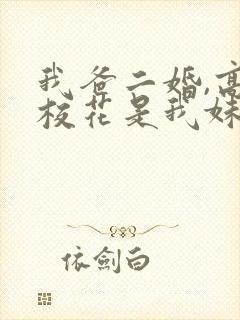 我爸二婚,高
校花是我妹
依劍白